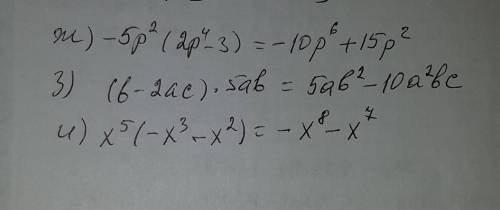 ж) -5p²(2p⁴-3) = -10p⁶+15p²
з) (b-2ac)·5ab = 5ab²-10a²bc
и) x⁵(-x³-x²) = -x⁸-x⁷